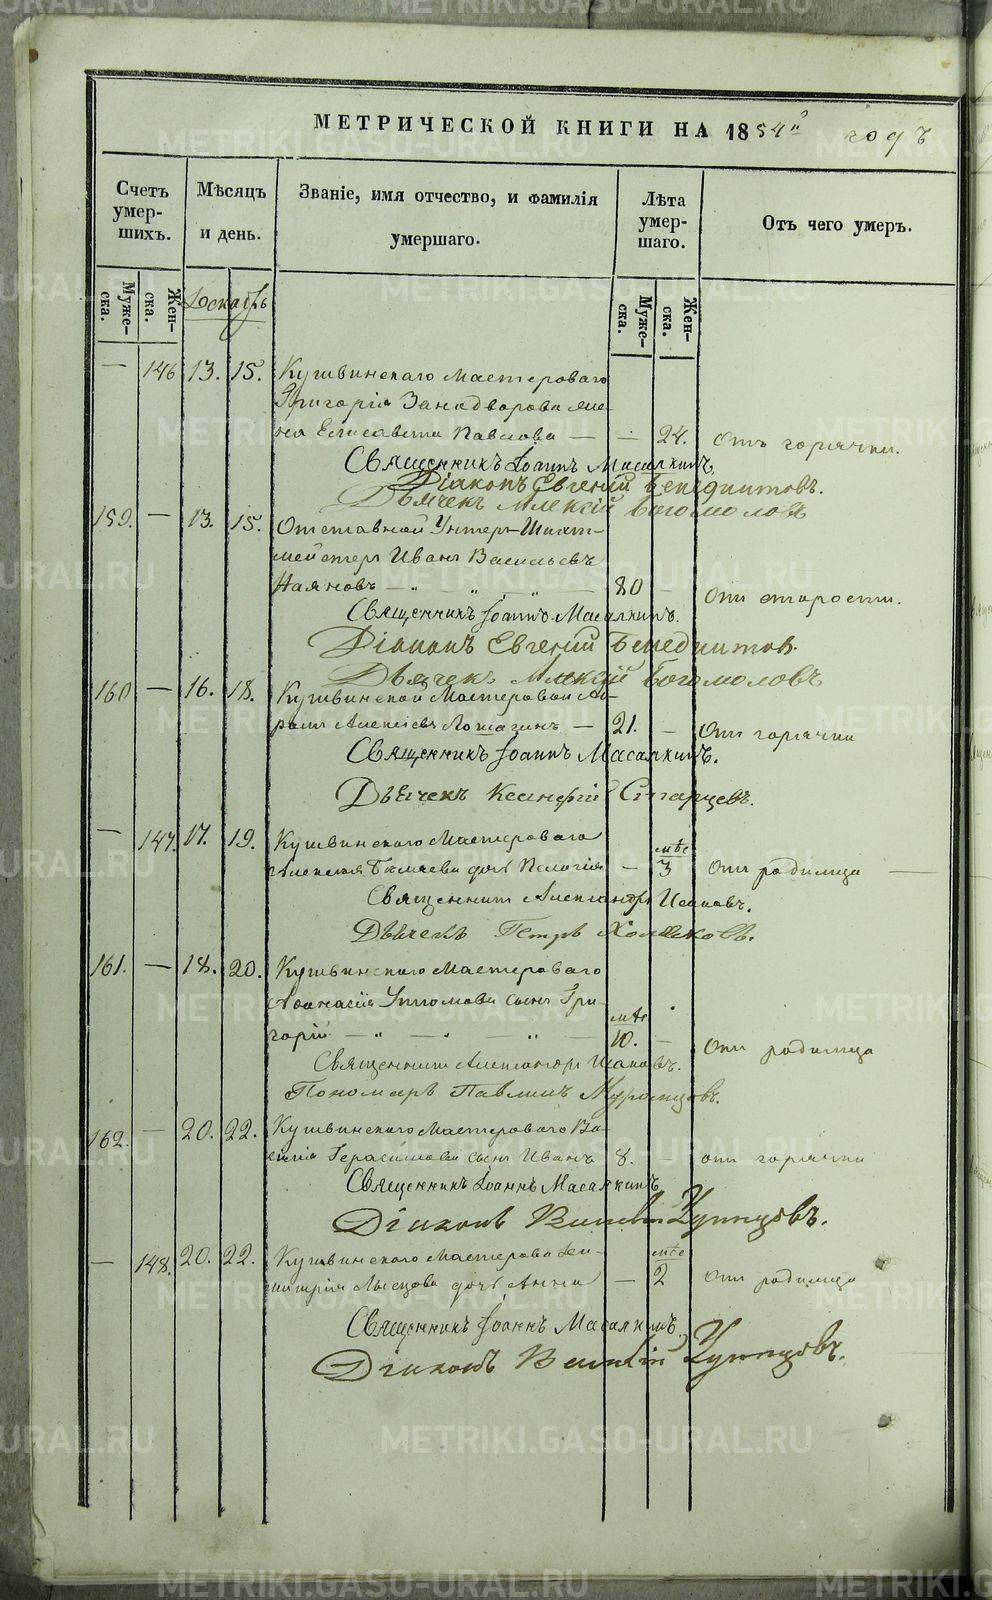 МЕТРИЧЕСКОЙ КНИГИ НА 1854й годъ
Счетъ умершихъ.
Мѣсяцъ и день.
Званіе, имя отчество, и фамилія умершаго.
Лѣта умершаго.
Отъ чего умеръ.
Мужеска.
Женска.
Декабрь
Мужеска.
Женска.
— 146 13. 15. Кушвинскаго Мастероваго
Григорія Занадворова же-
на Елисавета Павлова — — 24. Отъ горячки.
Священникъ Іоаннъ Масалкинъ.
Діаконъ Евгений Бенедиктовъ.
Дьячекъ Алексій Богомоловъ
159. — 13. 15. Отставной Унтеръ-Шихт-
мейстеръ Иванъ Васильевъ
Наяновъ 80 — Отъ старости.
Священникъ Іоаннъ Масалкинъ.
Діаконъ Евгений Бенедиктовъ.
Дьячекъ Алексій Богомоловъ
160 — 16. 18. Кушвинской Мастеровой
Алексіевъ — 21. — Отъ горячки
Священникъ Іоаннъ Масалкинъ.
Дьячекъ Старцевъ.
— 147. 17. 19. Кушвинскаго Мастероваго
Алексѣя дочь Пелагія — мѣс 3 Отъ родимца —
Священникъ Александръ Исаковъ.
Дьячекъ Петръ Холмковъ.
161. — 18. 20. Кушвинскаго Мастероваго
Афанасія Уткомова сынъ Гри-
горій — мѣс 10. — Отъ родимца
Священникъ Александръ Исаковъ.
Пономарь Павлинъ Муромцовъ.
162. — 20. 22. Кушвинскаго Мастероваго Ва-
силія Герасимова сынъ Иванъ 8. — отъ горячки
Священникъ Іоаннъ Масалкинъ
Діаконъ Удинцовъ.
— 148. 20. 22. Кушвинскаго Мастерова Ди-
митрія дочь Анна — мѣс 2 Отъ родимца
Священникъ Іоаннъ Масалкинъ
Діаконъ Удинцовъ.
METRIKI.GASO-URAL.RU